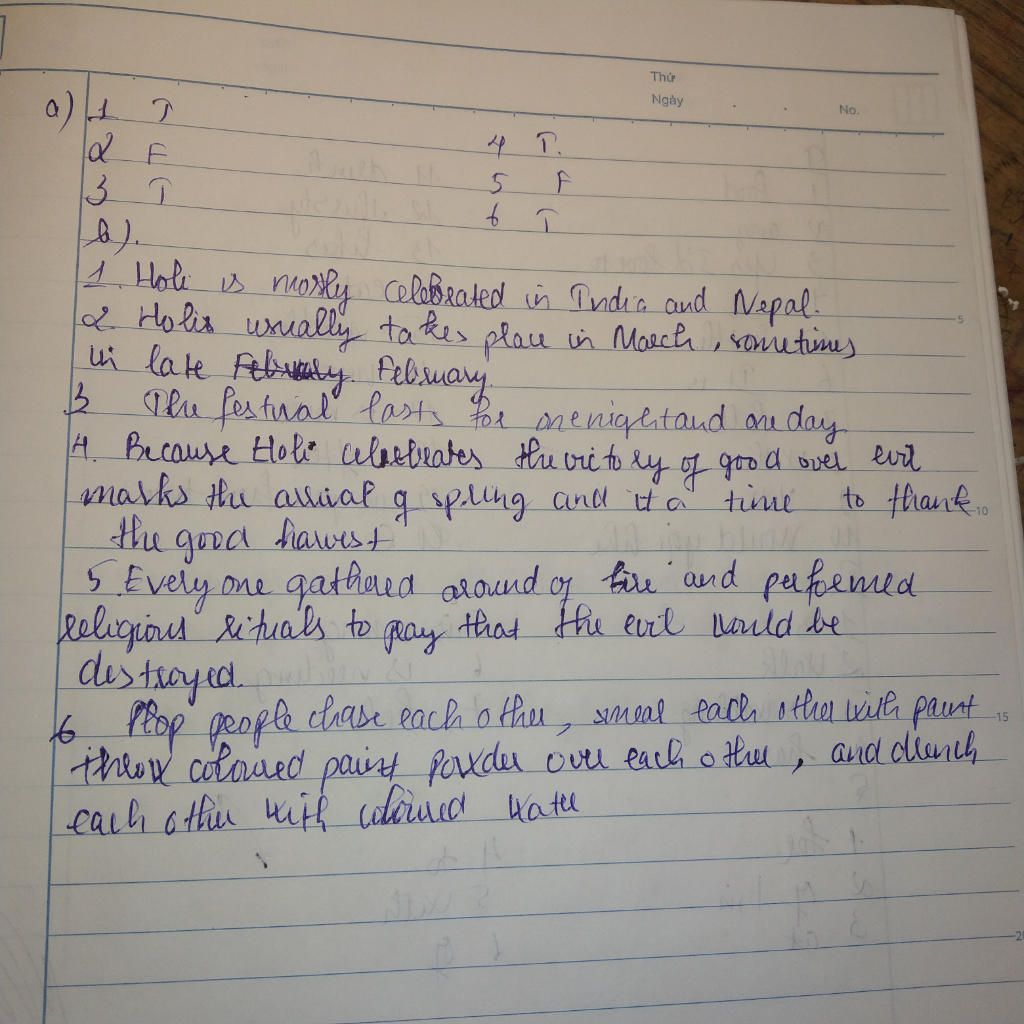 Thứ
Ngày . . No.
a) 1 T
2 F 4 T.
3 T 5 F
6 T
b).
1. Holi is mostly celebrated in India and Nepal.
2 Holi usually takes place in March, sometimes
in late February. February.
3 The festival lasts for one night and one day
4. Because Holi celebrates the victory of good over evil
marks the arrival of spring and it a time to thank
the good harvest
5. Every one gathered around of fire and performed
religious rituals to pray that the evil would be
destroyed.
6 people chase each other, smear each other with paint
throw coloured paint powder over each other, and drench
each other with coloured water
5
10
15